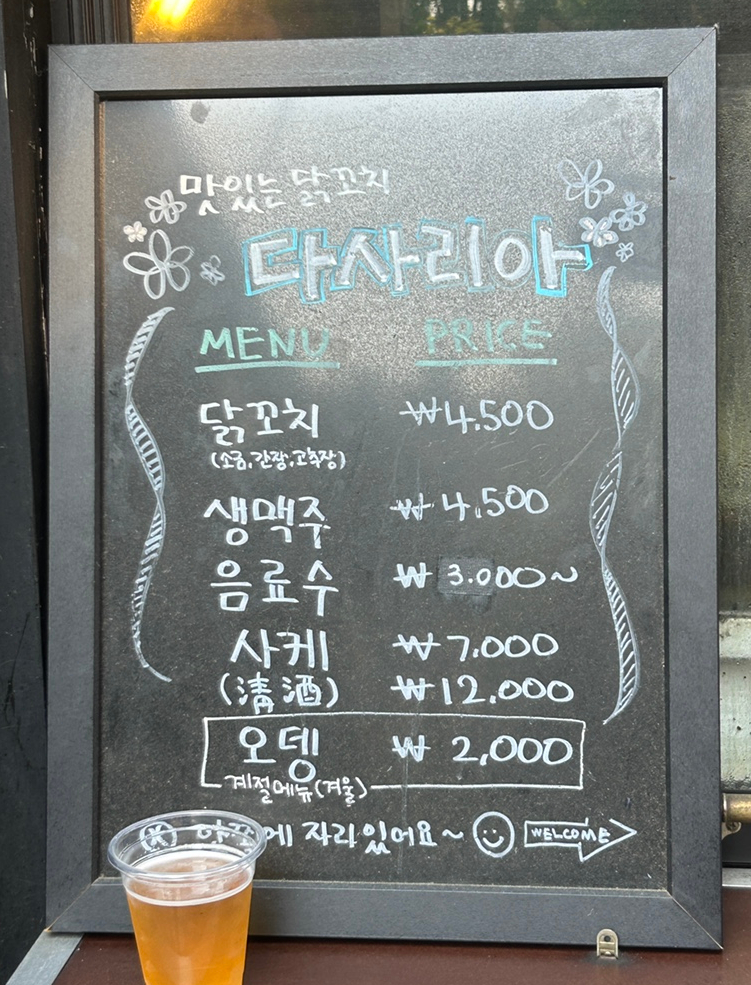 맛있는 닭꼬치
다사리아
MENU PRICE
닭꼬치 ₩4,500
(소금,간장,고추장)
생맥주 ₩4,500
음료수 ₩3.000~
사케 ₩7.000
(清酒) ₩12.000
오뎅 ₩2,000
계절메뉴(겨울)
에 자리있어요~ WELCOME